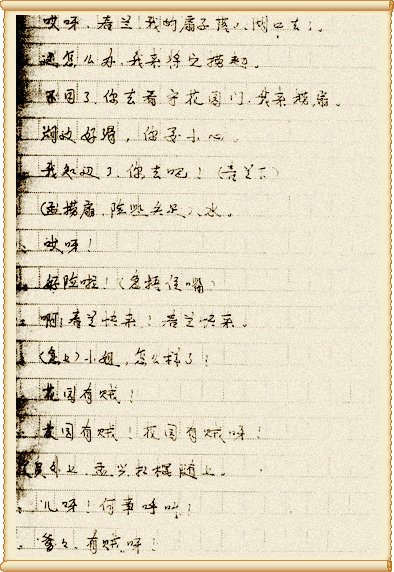 哎呀,春兰,我的扇子落入湖中去了。
这怎么办,我来将它捞起。
不用了,你去看守花园门,我来捞扇。
湖边好滑,你要小心。
我知道了,你去吧!(春兰下)
(孟捞扇,险些失足入水。
哎呀!
好险啦!(急捂住嘴)
啊!春兰快来!春兰快来。
(急上)小姐,怎么样了!
花园有贼!
花园有贼!花园有贼呀!
员外上,孟兴扛棍随上。
儿呀!何事呼叫!
爹々,有贼呀!